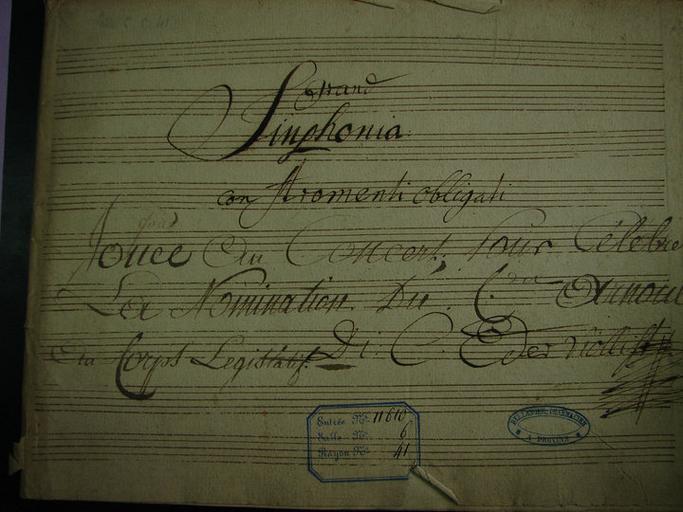 Grand
Sinphonia
con Stromenti obligati
Jouee Au Concert. Pour Celebre
La Nomination. Du. C.en Arnoul
Au Corps Legislatif. Di. C. Eder
Entrée N.º 11610
Salle N.º 6
Rayon N.º 41
A PROVINS